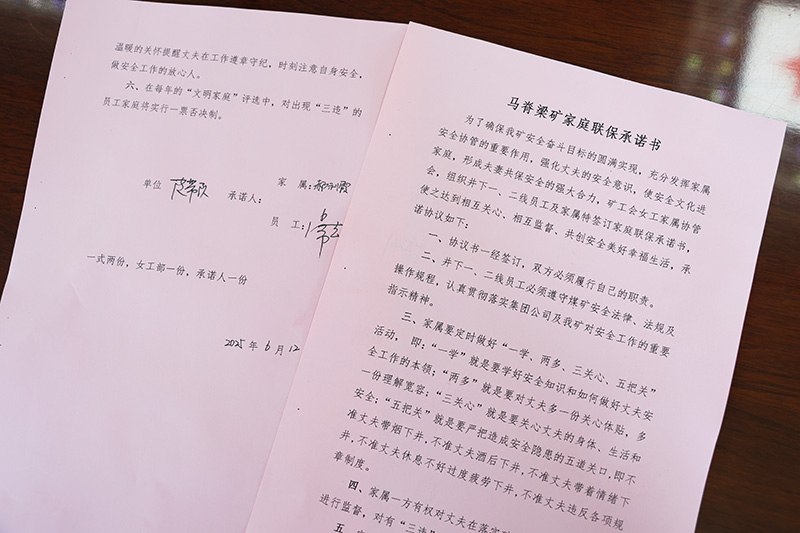 温暖的关怀提醒丈夫在工作遵章守纪，时刻注意自身安全，
做安全工作的放心人。
六、在每年的“文明家庭”评选中，对出现“三违”的
员工家庭将实行一票否决制。
单位
承诺人：
家 属：
员 工：
一式两份，女工部一份，承诺人一份
2025年6月12
马脊梁矿家庭联保承诺书
为了确保我矿安全奋斗目标的圆满实现，充分发挥家属
安全协管的重要作用，强化丈夫的安全意识，使安全文化进
家庭，形成夫妻共保安全的强大合力，矿工会女工家属协管
会，组织井下一、二线员工及家属特签订家庭联保承诺书，
使之达到相互关心、相互监督、共创安全美好幸福生活，承
诺协议如下：
一、协议书一经签订，双方必须履行自己的职责。
二、井下一、二线员工必须遵守煤矿安全法律、法规及
操作规程，认真贯彻落实集团公司及我矿对安全工作的重要
指示精神。
三、家属要定时做好“一学、两多、三关心、五把关”
活动，即：“一学”就是要学好安全知识和如何做好丈夫安
全工作的本领；“两多”就是要对丈夫多一份关心体贴，多
一份理解宽容；“三关心”就是要关心丈夫的身体、生活和
安全；“五把关”就是要严把造成安全隐患的五道关口，即不
准丈夫带烟下井，不准丈夫酒后下井，不准丈夫带着情绪下
井，不准丈夫休息不好过度疲劳下井，不准丈夫违反各项规
章制度。
四、家属一方有权对丈夫在落实
进行监督，对有“三违”
五、